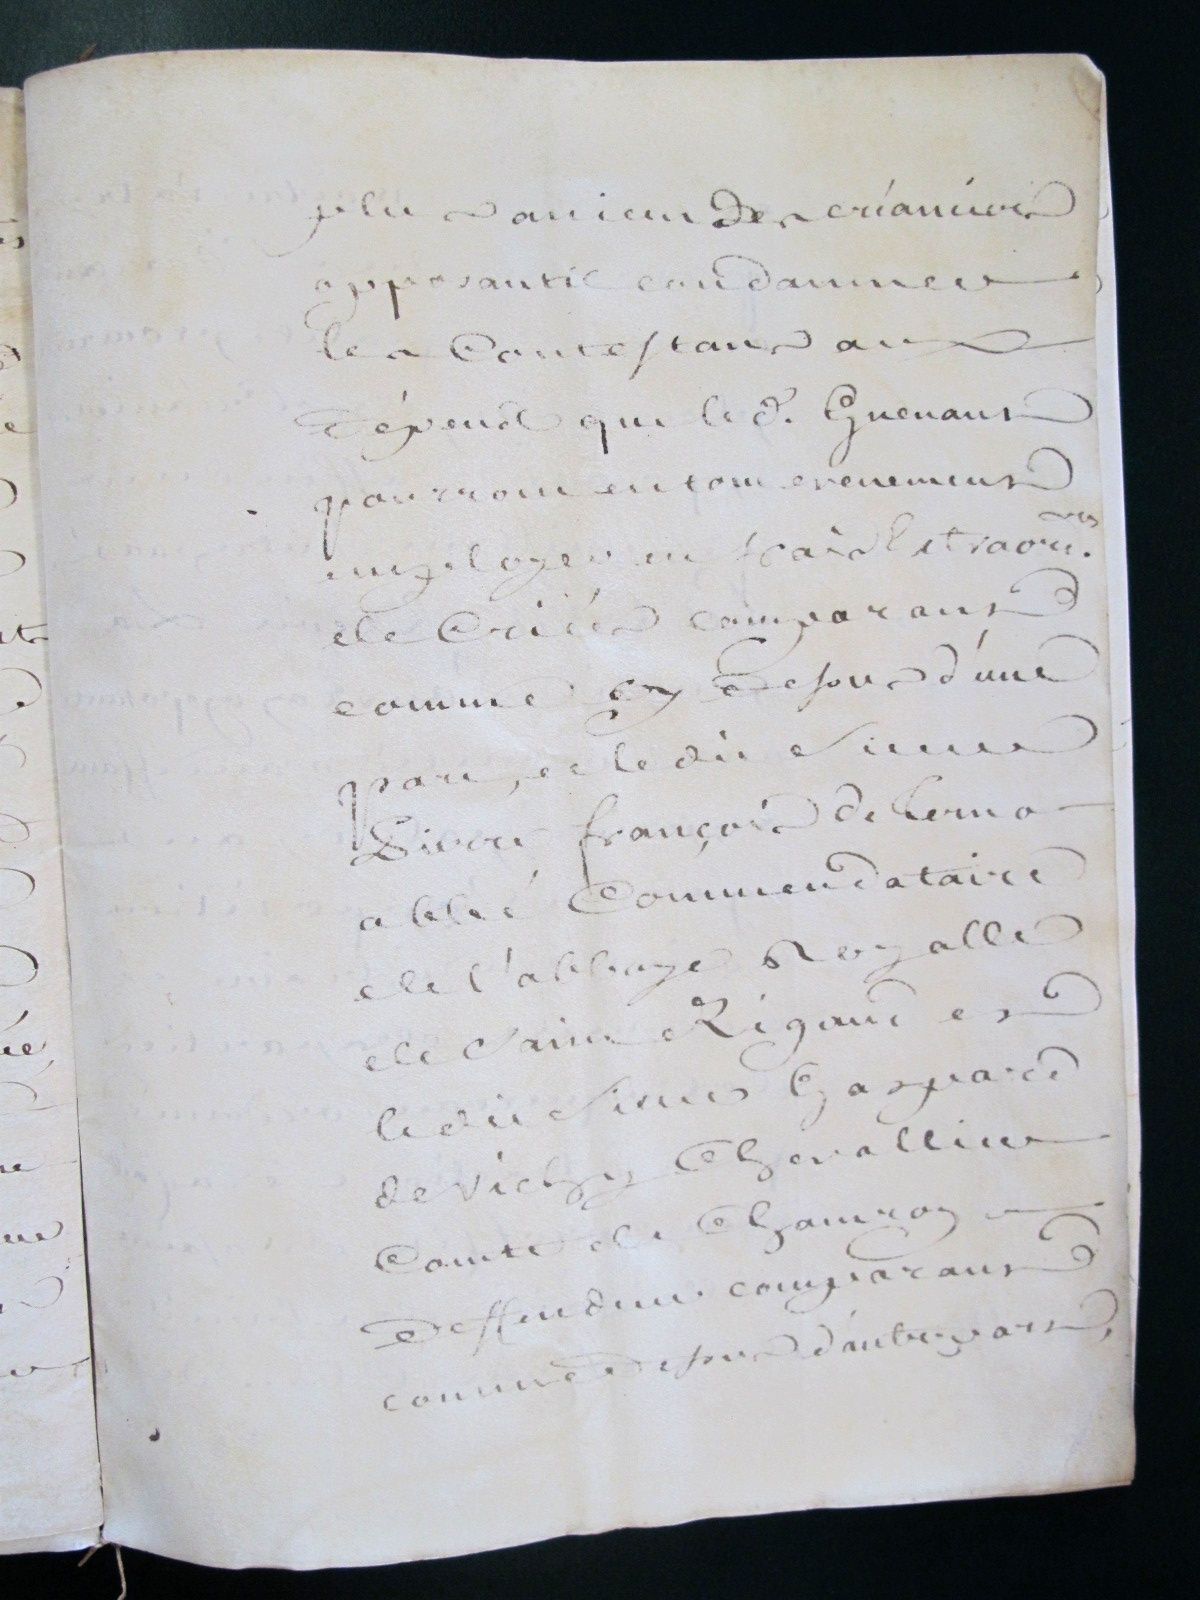 plus ancien des créanciers
opposants condamner
les Contestans aux
dépens que led. Guenaus
pourront en tout evenement
employer en frais Extraor.res
de Criées comparans
comme cy dessus d'une
part, et ledit Sieur
Pierre françois de Lerno
abbé Commendataire
de l'abbaye Royalle
de Saint Rigaud et
ledit Sieur Gaspard
de Vichy Chevallier
Comte de Chamron
deffendeur comparans
comme dessus d'autre part,